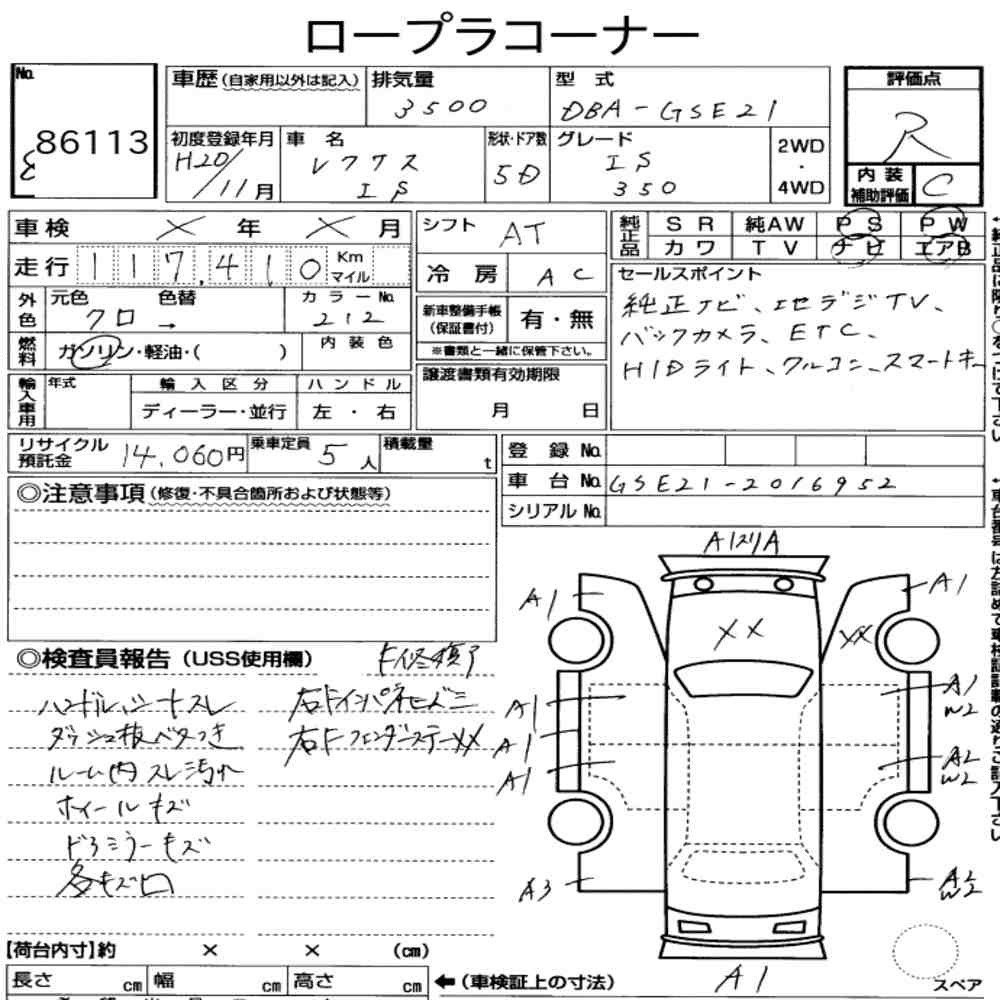 ロープラコーナー
No. 86113
車歴(自家用以外は記入) 排気量 3500 型式 DBA-GSE21 評価点 R
初度登録年月 H20/11月 車名 レクサス IS 形状・ドア数 5D グレード IS 350 2WD・4WD 内装補助評価 C
車検 × 年 × 月 シフト AT 純正品 SR 純AW PS PW
カワ TV ナビ エアB
走行 117,410 Km マイル 冷房 AC セールスポイント
外色 元色 クロ 色替 → カラーNo. 212 新車整備手帳(保証書付) 有・無 純正ナビ、地デジTV、
バックカメラ、ETC、
燃料 ガソリン・軽油・( ) 内装色 ※書類と一緒に保管下さい。 HIDライト、クルコン、スマートキー
輸入車用 年式 輸入区分 ハンドル 譲渡書類有効期限
ディーラー・並行 左・右 月 日
リサイクル預託金 14,060円 乗車定員 5人 積載量 t 登録No.
車台No. GSE21-2016952
シリアルNo.
◎注意事項(修復・不具合箇所および状態等)
◎検査員報告(USS使用欄)
ハンドル、シートスレ
ダッシュ板ベタつき
ルーム内スレ汚れ
ホイールキズ
ドアミラーキズ
右Fインパネヒズミ
右FフェンダーステーXX
A1 A1
XX XX
A1 A1 W2
A1
A1 A2 W2
A3 A2 W2
A1
スペア
【荷台内寸】約 × × (cm)
長さ cm 幅 cm 高さ cm ←(車検証上の寸法)